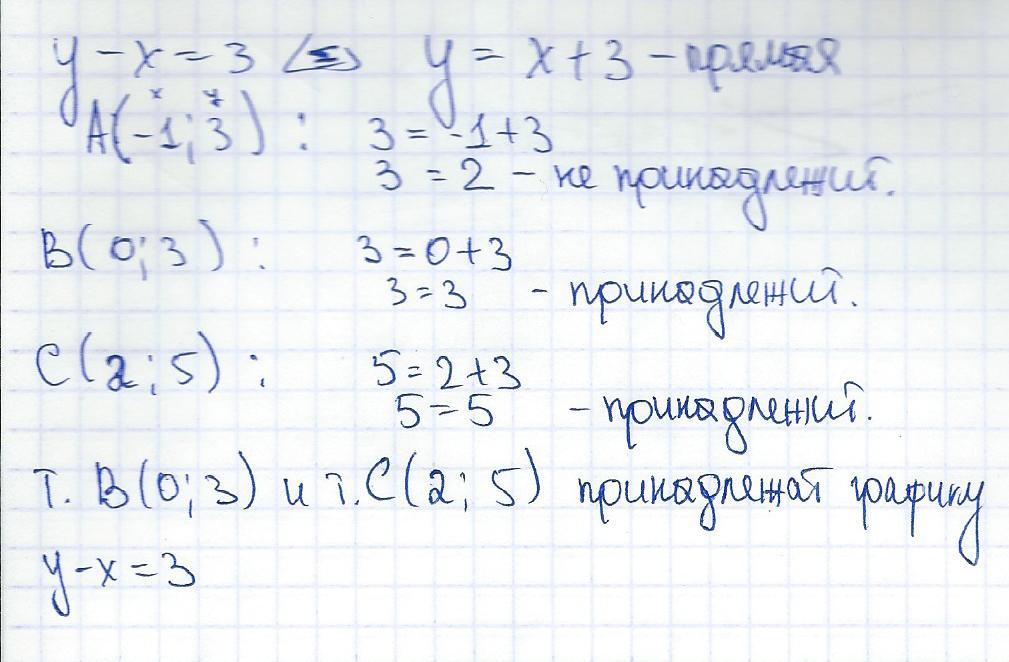 y - x = 3 <=> y = x + 3 - прямая
x y
A(-1; 3) : 3 = -1 + 3
3 = 2 - не принадлежит.
B(0; 3) : 3 = 0 + 3
3 = 3 - принадлежит.
C(2; 5) : 5 = 2 + 3
5 = 5 - принадлежит.
т. B(0; 3) и т. C(2; 5) принадлежат графику
y - x = 3